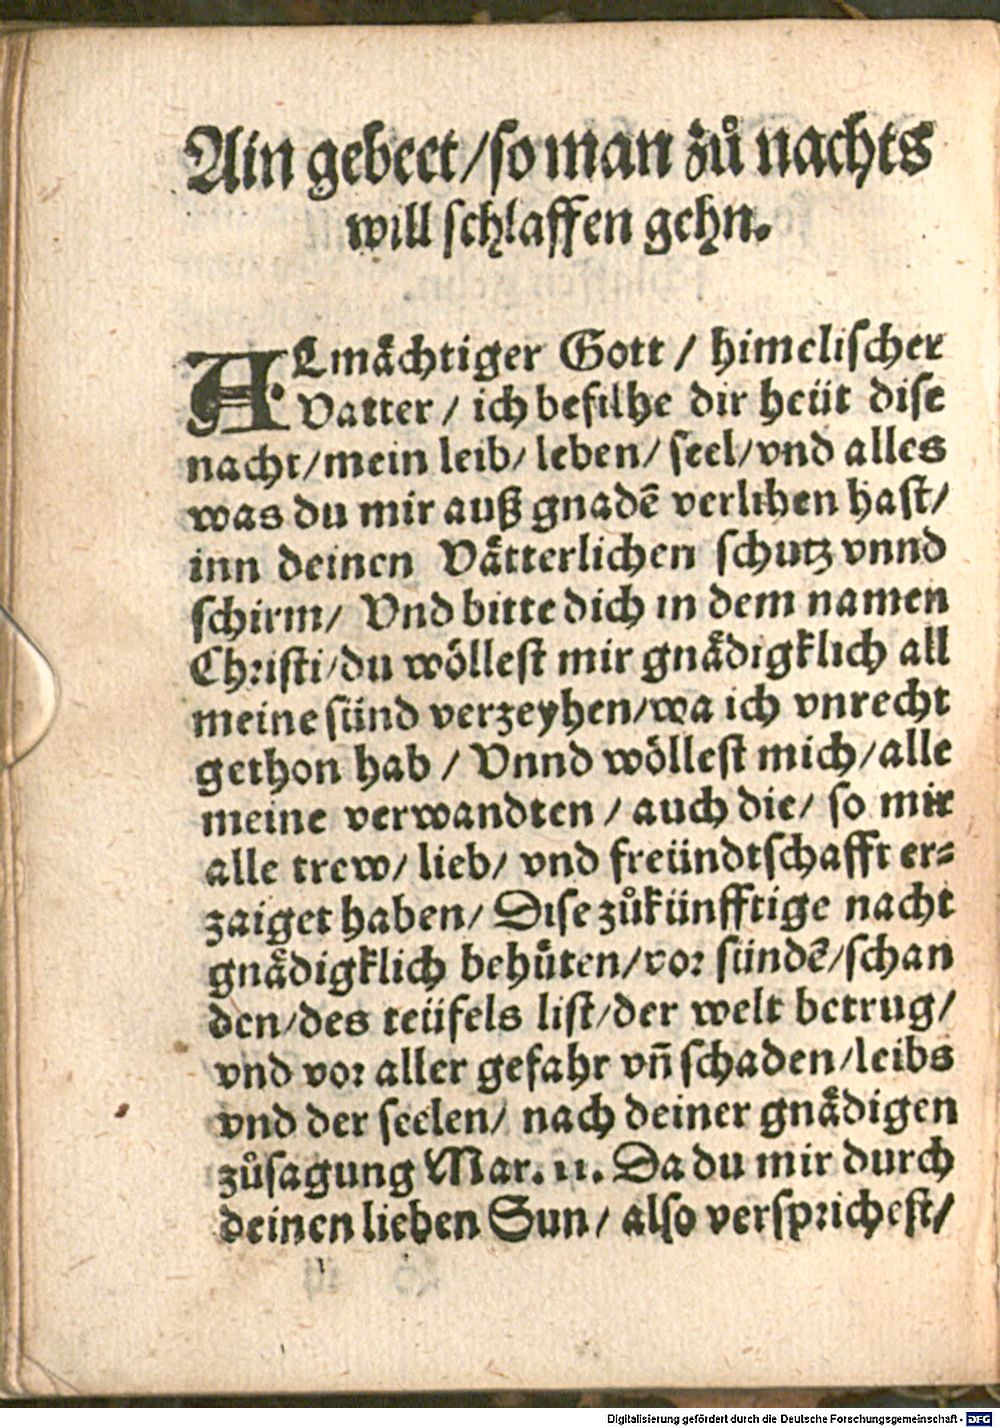 Ain gebeet/so man zuͦ nachts
will schlaffen gehn.
ALmaͤchtiger Gott / himelischer
Vatter / ich befilhe dir heüt dise
nacht/mein leib/ leben/ seel/vnd alles
was du mir auß gnadē verlihen hast/
inn deinen Vaͤtterlichen schutz vnnd
schirm/ Vnd bitte dich in dem namen
Christi/du woͤllest mir gnaͤdigklich all
meine sünd verzeyhen/wa ich vnrecht
gethon hab / Vnnd woͤllest mich/alle
meine verwandten / auch die/ so mir
alle trew/ lieb/ vnd freündtschafft er⸗
zaiget haben/ Dise zuͦkünfftige nacht
gnaͤdigklich behuͤten/vor sündē/schan
den/des teüfels list/der welt betrug/
vnd vor aller gefahr vñ schaden/leibs
vnd der seelen/ nach deiner gnaͤdigen
zuͦsagung Mar. 11. Da du mir durch
deinen lieben Sun/ also versprichest/
Digitalisierung gefördert durch die Deutsche Forschungsgemeinschaft - DFG